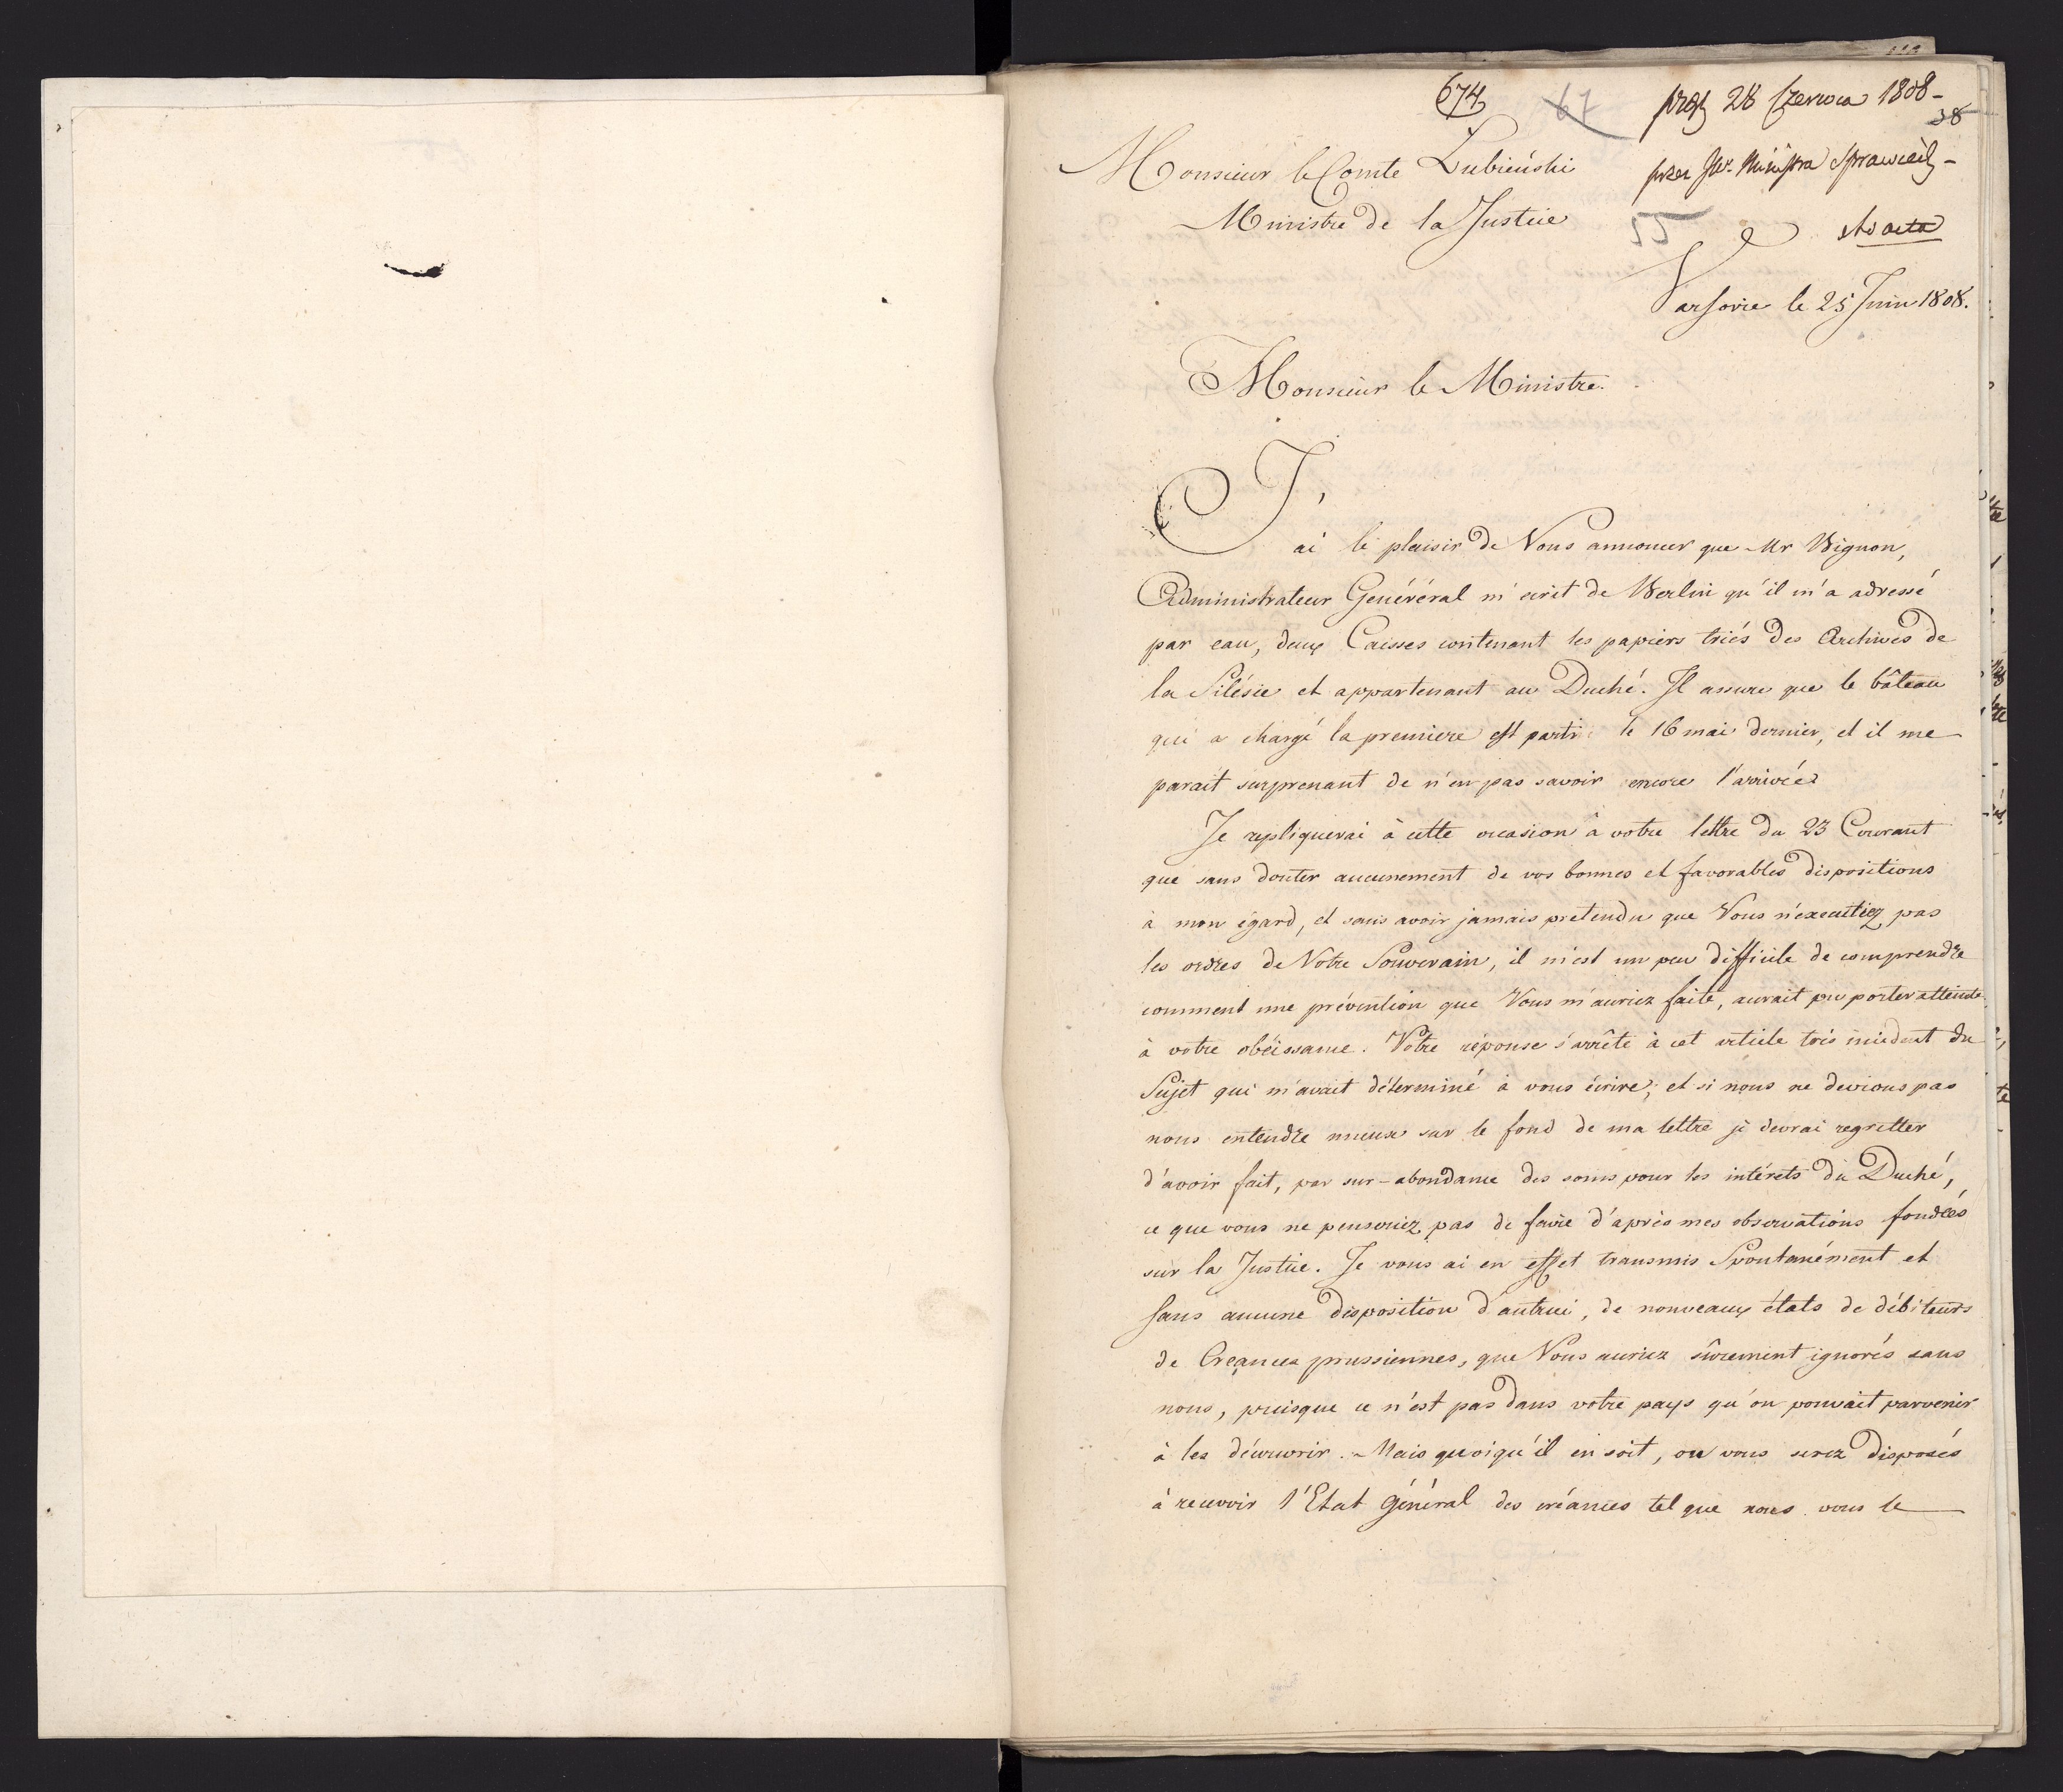 674 67 28 Czerwca 1808-
38
Monsieur le Comte Lubieński
przez JW. Ministra Sprawiedl-
Ministre de la Justice
55
ad acta
Varsovie le 25 Juin 1808.
Monsieur le Ministre.
J'ai le plaisir de Vous annoncer que Mr Bignon,
Administrateur Genéréral m'ecrit de Berlin qu'il m'a adressé
par eau, deux Caisses contenant les papiers triés des Archives de
la Silésie et appartenant au Duché. Il assure que le bâteau
qui a chargé la premiere est parti le 16 mai dernier, et il me
parait surprenant de n'en pas savoir encore l'arrivée.
Je repliquerai à cette occasion à votre lettre du 23 Courant
que sans douter aucunement de vos bonnes et favorables dispositions
à mon égard, et sans avoir jamais pretendu que Vous n'executiez pas
les ordres de Votre Souverain, il m'est un peu difficile de comprendre
comment une prévention que Vous m'auriez faite, aurait pu porter atteinte
à votre obéissance. Votre réponse s'arrête à cet article très incident du
Sujet qui m'avait déterminé à vous écrire; et si nous ne devions pas
nous entendre mieux sur le fond de ma lettre je devrai regretter
d'avoir fait, par sur-abondance des soins pour les intérets du Duché,
ce que vous ne penseriez pas de faire d'après mes observations fondées
sur la Justice. Je vous ai en effet transmis Spontanément et
sans aucune disposition d'autrui, de nouveaux états de débiteurs
de Creances prussiennes, que Vous auriez sûrement ignorés sans
nous, puisque ce n'est pas dans votre pays qu'on pouvait parvenir
à les découvrir. Mais quoiqu'il en soit, ou vous serez disposés
à recevoir l'Etat général des créances tel que nous vous le